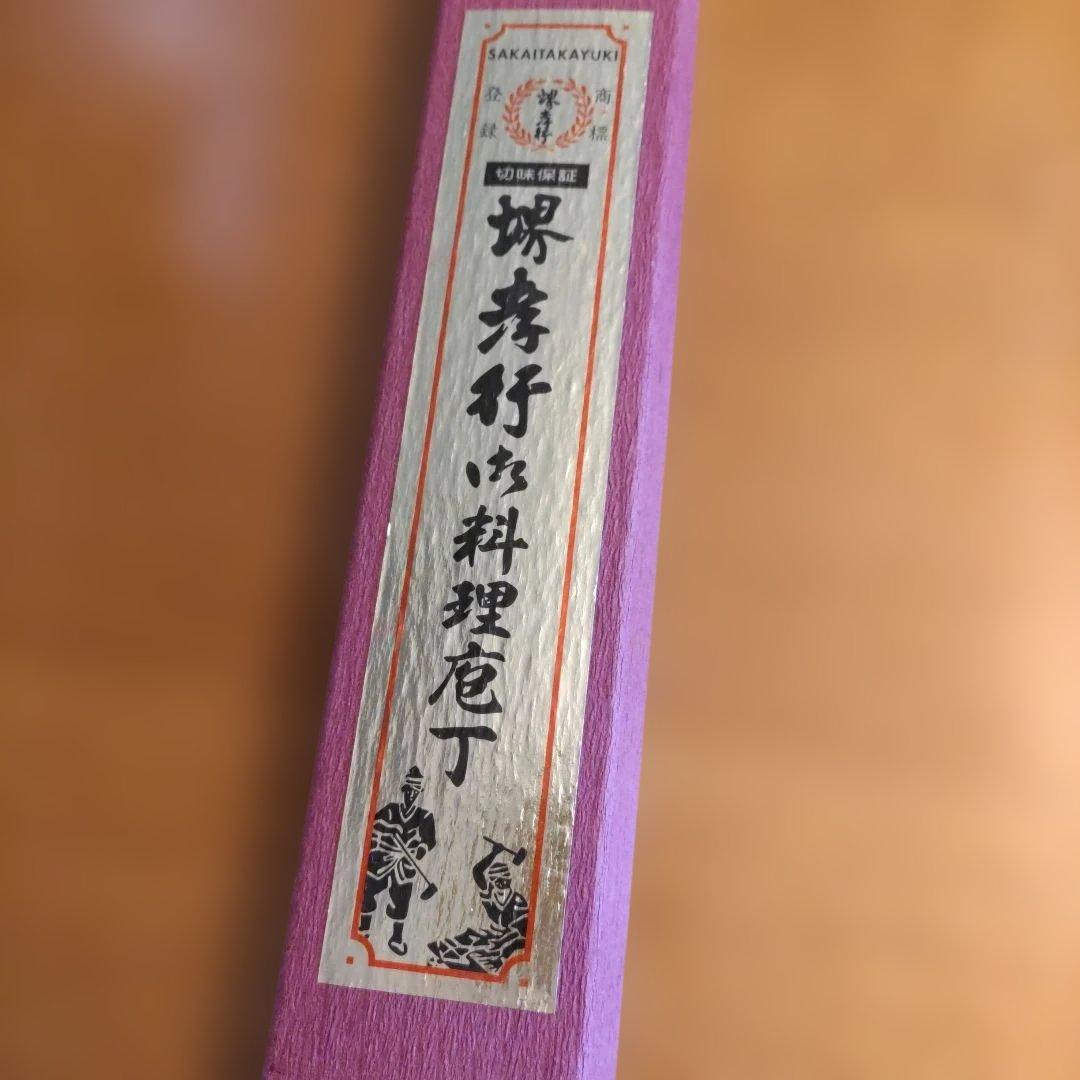 SAKAITAKAYUKI
商標
登録
堺孝行
切味保証
堺孝行御料理庖丁